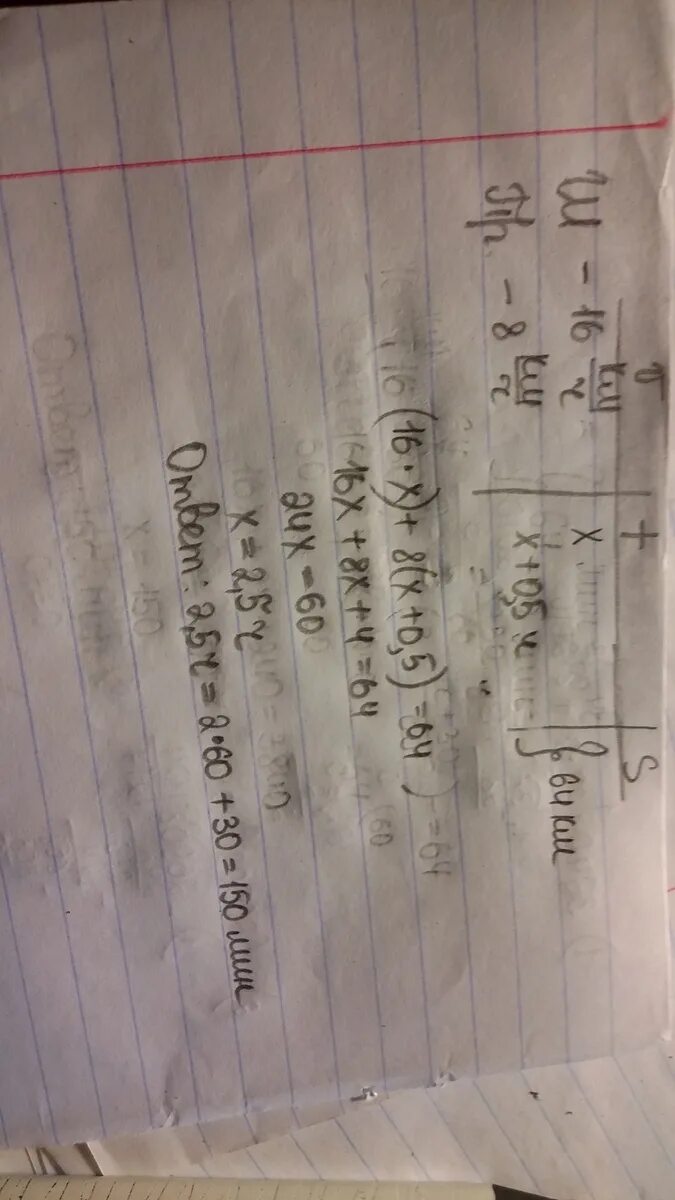 v t S
Ш - 16 км/ч x } 64 км
Пр. - 8 км/ч x+0,5 ч
(16·x)+8(x+0,5)=64
16x+8x+4=64
24x=60
x=2,5ч
Ответ: 2,5ч=2·60+30=150 мин